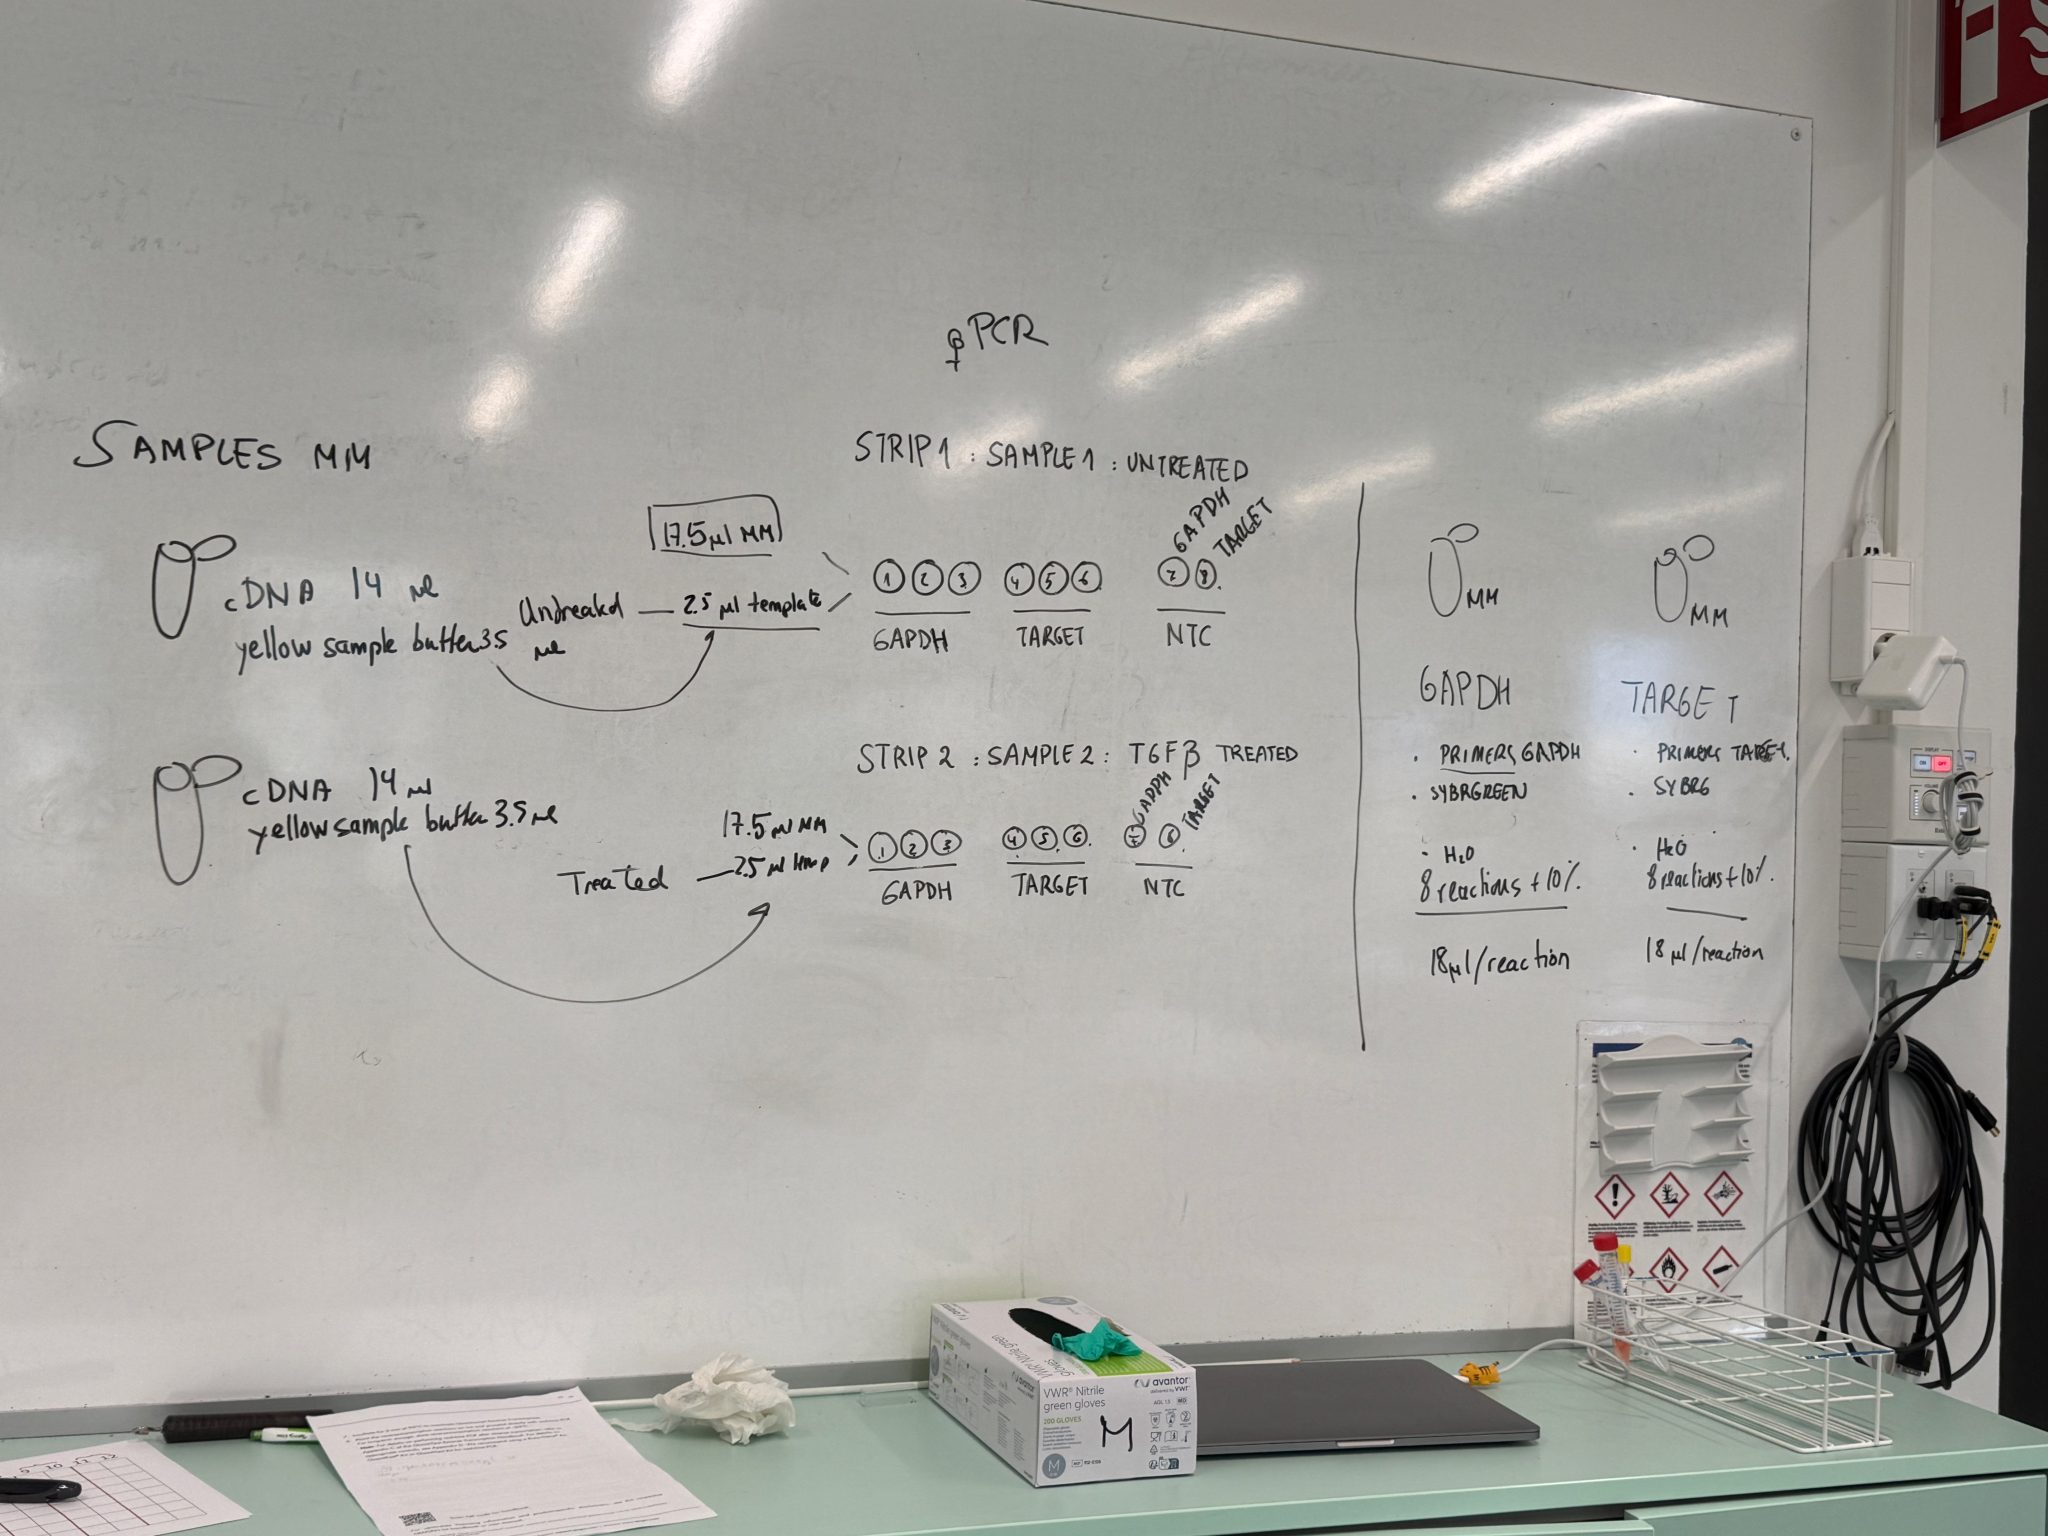 qPCR
SAMPLES MM
cDNA 14 µl
yellow sample buffer 3.5 µl
Untreated
17.5 µl MM
2.5 µl template
cDNA 14 µl
yellow sample buffer 3.5 µl
Treated
17.5 µl MM
2.5 µl
STRIP 1 : SAMPLE 1 : UNTREATED
GAPDH
TARGET
1 2 3 4 5 6 7 8
GAPDH TARGET NTC
STRIP 2 : SAMPLE 2 : TGFβ TREATED
GAPDH
TARGET
1 2 3 4 5 6 7 8
GAPDH TARGET NTC
MM
GAPDH
· PRIMERS GAPDH
· SYBRGREEN
· H2O
8 reactions + 10%
18 µl/reaction
MM
TARGET
· PRIMERS TARGET
· SYBRG
· H2O
8 reactions + 10%
18 µl/reaction
VWR® Nitrile
green gloves
200 GLOVES
M
M
avantor
delivered by vwr
9 10 11 12
ON OFF